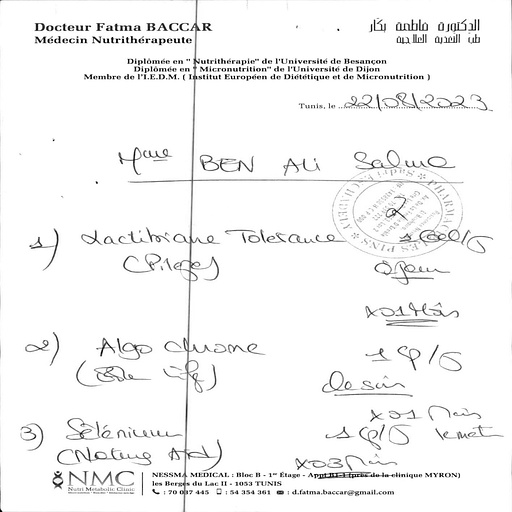 Docteur Fatma BACCAR
Médecin Nutrithérapeute
الدكتورة فاطمة بكار
طب التغذية العلاجية
Diplômée en " Nutrithérapie" de l'Université de Besançon
Diplômée en " Micronutrition" de l'Université de Dijon
Membre de l'I.E.D.M. ( Institut Européen de Diététique et de Micronutrition )
Tunis, le 22/08/2023
Mme BEN ALI Salma
1) Lactibiane Tolerance 1 Gel/J
(Pilege)
x01 Mois
2) Algo chrome 1 cp/J
le soir
x01 Mois
3) Sélénium 1 cp/J le matin
x03 Mois
NMC
Nutri Metabolic Clinic
NESSMA MEDICAL : Bloc B - 1er Étage - Appt B1-1 (près de la clinique MYRON)
les Berges du Lac II - 1053 TUNIS
: 70 037 445 : 54 354 361 : d.fatma.baccar@gmail.com